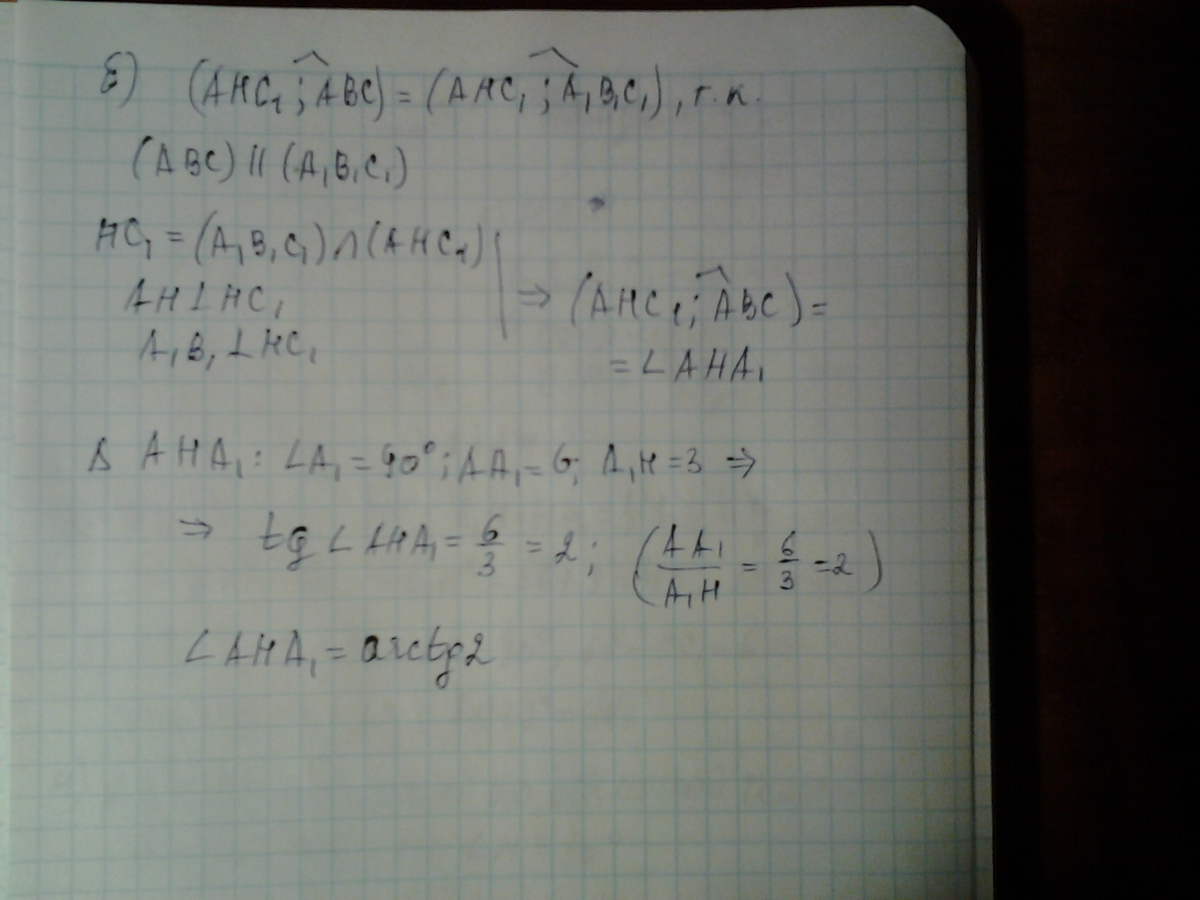 б) (AHC₁; ABC) = (AHC₁; A₁B₁C₁), т.к.
(ABC) || (A₁B₁C₁)
HC₁ = (A₁B₁C₁) ∩ (AHC₁)
AH ⊥ HC₁
A₁B₁ ⊥ HC₁
⇒ (AHC₁; ABC) =
= ∠AHA₁
Δ AHA₁: ∠A₁ = 90°; AA₁ = 6; A₁H = 3 ⇒
⇒ tg ∠AHA₁ = 6/3 = 2; (AA₁/A₁H = 6/3 = 2)
∠AHA₁ = arctg2